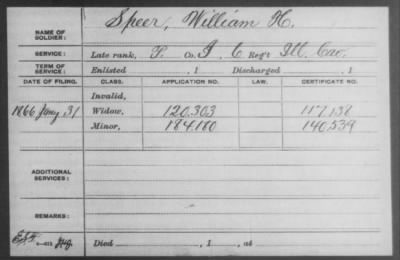 NAME OF SOLDIER: Speer, William H.
SERVICE: Late rank, P. Co. I, 6 Reg't Ill. Cav.
TERM OF SERVICE: Enlisted , 1 Discharged , 1
DATE OF FILING. CLASS. APPLICATION NO. LAW. CERTIFICATE NO.
Invalid,
1866 Jany 31 Widow, 120.303 117.138
Minor, 184.180 140.539
ADDITIONAL SERVICES:
REMARKS:
Died , 1 , at